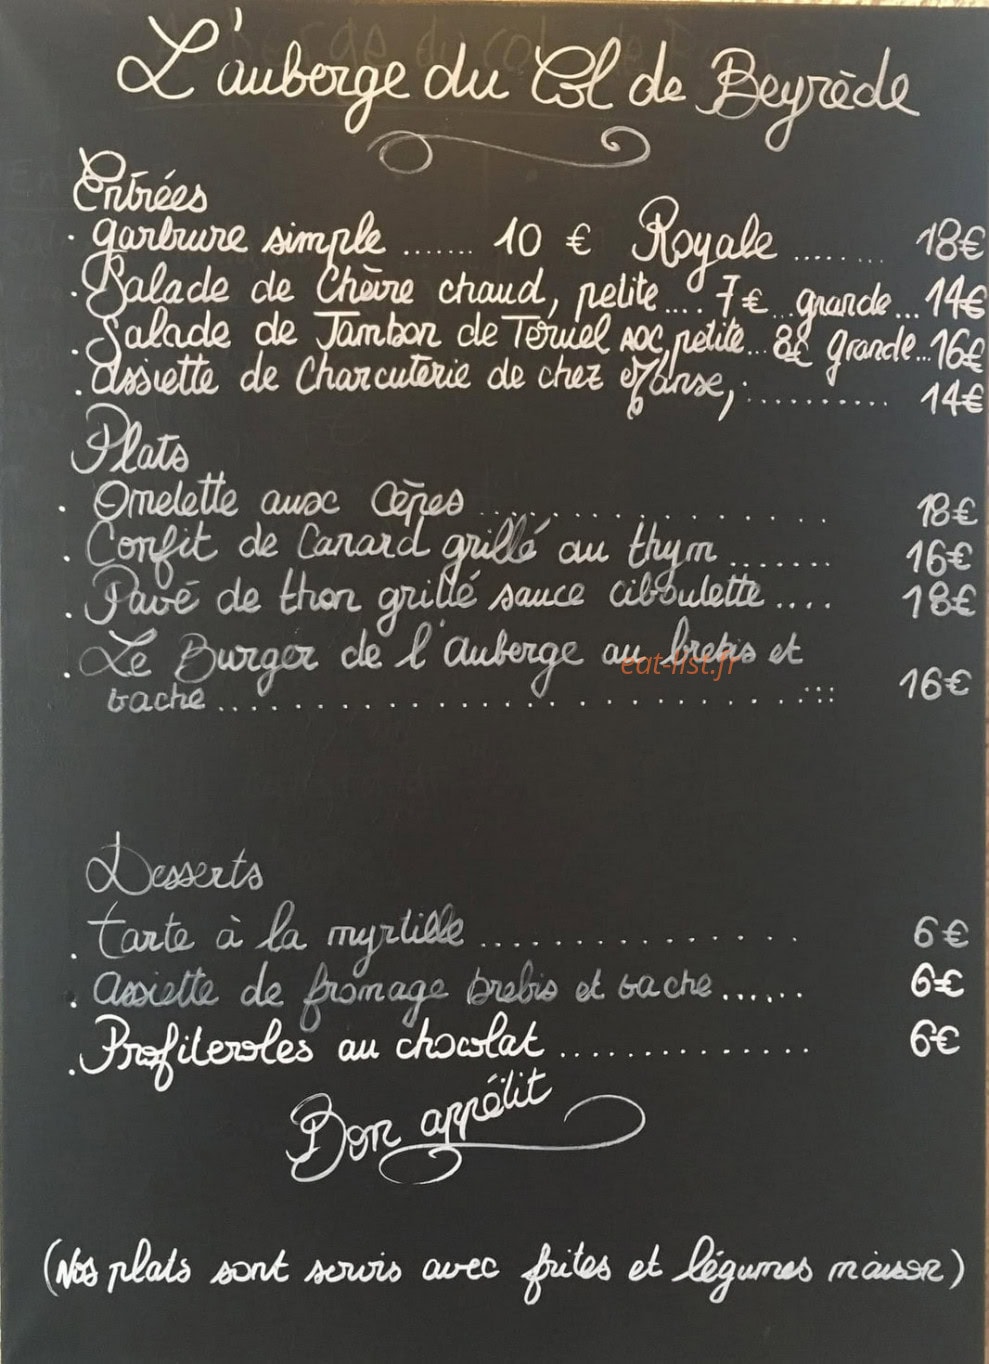 L'auberge du Col de Beyrède
Entrées
. garbure simple ....... 10 € Royale ........ 18€
. Salade de Chèvre chaud, petite.... 7€... grande... 14€
. Salade de Jambon de Teruel petite... 8€ grande... 16€
. assiette de Charcuterie de chez ........... 14€
Plats
. Omelette aux Cèpes ................ 18€
. Confit de Canard grillé au thym ....... 16€
. Pavé de thon grillé sauce ciboulette .... 18€
. Le Burger de l'auberge au brebis et
vache ........................ 16€
eat-list.fr
Desserts
. tarte à la myrtille ............... 6€
. assiette de fromage brebis et vache ...... 6€
. Profiteroles au chocolat .............. 6€
Bon appétit
(Nos plats sont servis avec frites et légumes maison)